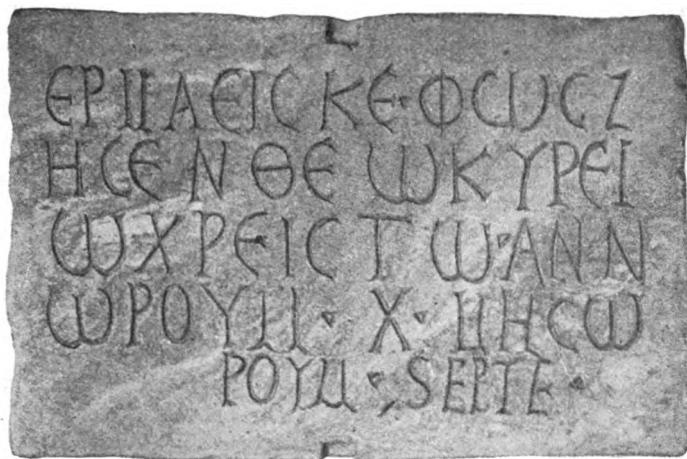 ΕΡΜΑΕΙϹΚΕ·ΦΩϹΖ
ΗϹΕΝ ΘΕΩ ΚΥΡΕΙ
ΩΧΡΕΙϹΤΩ·ΑΝΝ
ΩΡΟΥΜ·Χ·ΜΗϹΩ
ΡΟΥΜ·SEPTE·